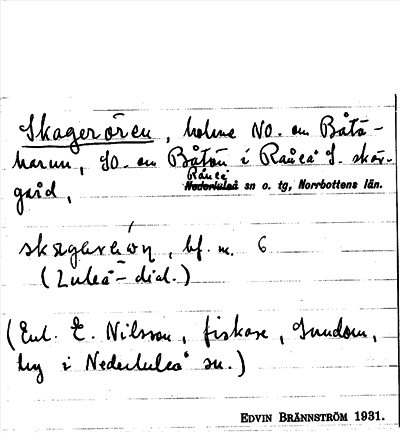 Skagerören, holme NO. om Båtö-
harun, SO. om Båtön i Råneå S. skär-
gård,
Råneå
Nederluleå sn o. tg, Norrbottens län.
bf. m. 6
(Luleå-dial.)
(Enl. E. Nilsson, fiskare, Sundom,
hg i Nederluleå sn.)
EDVIN BRÄNNSTRÖM 1931.